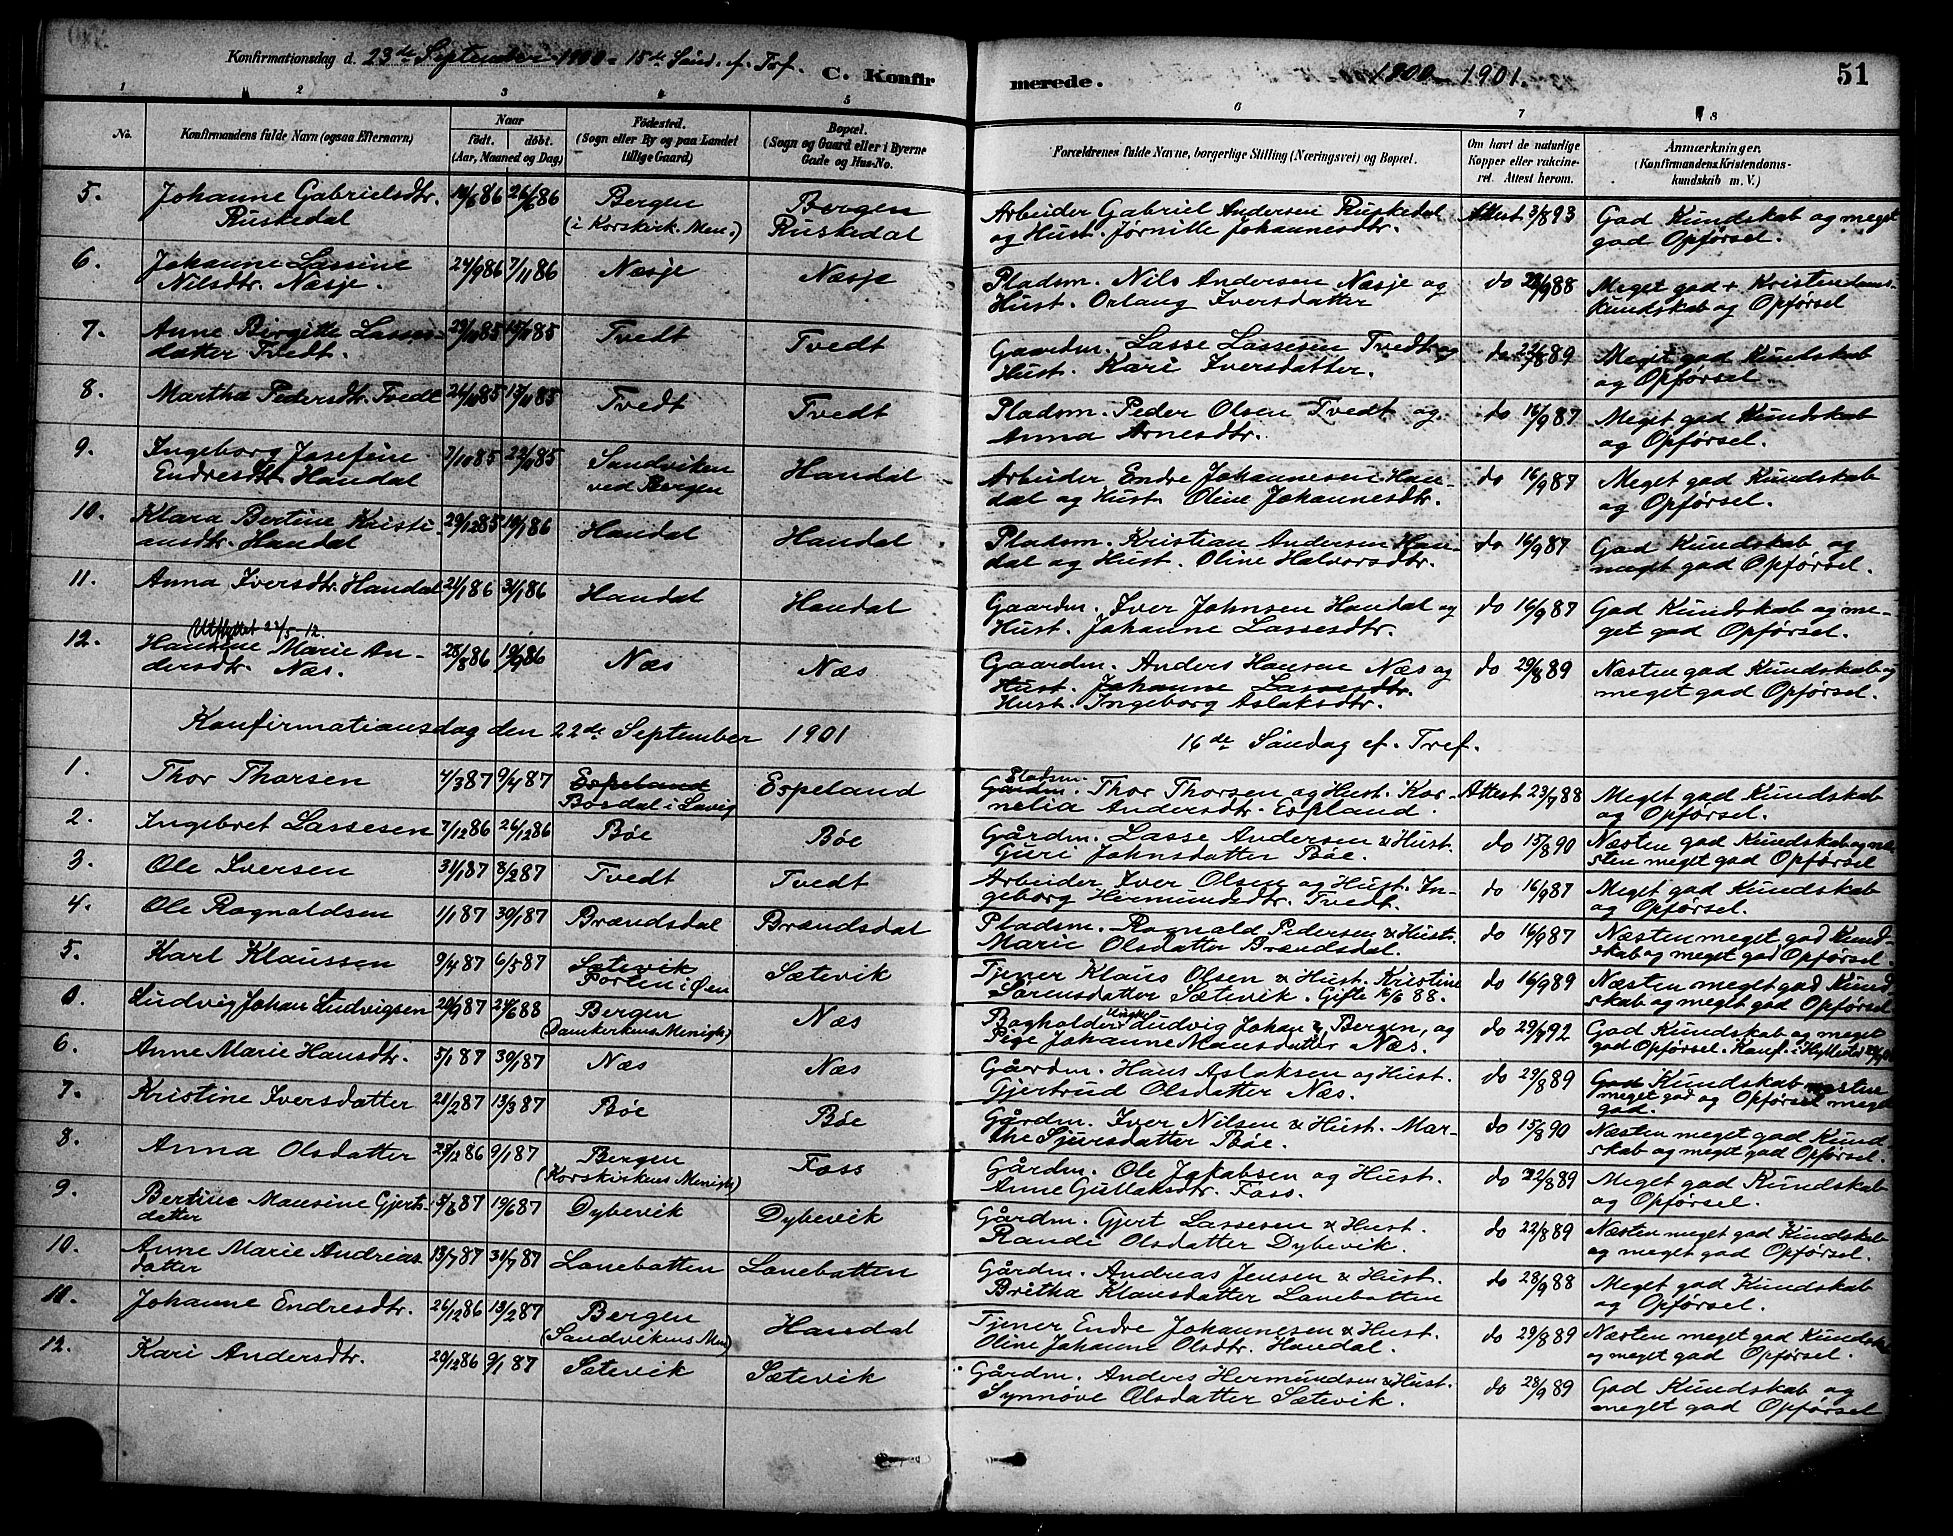 Konfirmationsdag d. 23de September 1900 - 15de Sönd. ef. Tref. C. Konfirmerede. 1900 - 1901. 51
1 2 3 4 5 6 7 8
No. Konfirmandens fulde Navn (ogsaa Efternavn) Naar födt. döbt. (Aar, Maaned og Dag) Födested. (Sogn eller By og paa Landet tillige Gaard) Bopæl. (Sogn og Gaard eller i Byerne Gade og Hus-No. Forældrenes fulde Navne, borgerlige Stilling (Næringsvei) og Bopæl. Om havt de naturlige Kopper eller vakcineret. Attest herom. Anmærkninger. (Konfirmandens Kristendomskundskab m. V.)
5. Johanne Gabrielsdtr. 26/6 86 Bergen Bergen Arbeider Gabriel Andersen Ruskedal Attest 3/8 93 God Kundskab og meget
Ruskedal (i Korskirk. Men:) Ruskedal og Hust. Jørnille Johannesdtr. god Opførsel.
6. Johanne Lassine 24/9 86 7/11 86 Næsje Næsje Pladsm. Nils Andersen Næsje og do Meget god Kristendoms-
Nilsdtr. Næsje. Hust. Orlaug Iversdatter kundskab og Opførsel
7. Anne Birgitte Lasses- Tvedt Tvedt Gaardm. Lasse Lassesen Tvedt og do 22/8 89 Meget god Kundskab
datter Tvedt. Hust. Kari Iversdatter. og Opførsel.
8. Martha Pedersdtr. Tvedt Tvedt Tvedt Pladsm. Peder Olsen Tvedt og do 16/9 87 Meget god Kundskab
Anna Arnesdtr. og Opførsel.
9. Ingeborg Josefine 7/10 85 Sandviken Handal Arbeider Endre Johannesen Han- do 16/9 87 Meget god Kundskab
Endresdtr Handal ved Bergen dal og Hust. Oline Johannesdtr. og Opførsel.
10. Klara Bertine Kristi- 29/12 85 Handal Handal Pladsm. Kristian Andersen Han- do 16/9 87 God Kundskab og
ansdtr. Handal dal og Hust. Oline Halvorsdtr. meget god Opførsel.
11. Anna Iversdtr. Handal 21/1 86 31/1 86 Handal Handal Gaardm. Iver Johnsen Handal og do 16/9 87 God Kundskab og me-
Hust. Johanne Lassesdtr. get god Opførsel.
(Utflyttet 21/5-12.
12. Hansine Marie An- 28/8 86 19/9 86 Næs Næs Gaardm. Anders Hansen Næs og do 29/8 89 Næsten god Kundskab og
dersdtr. Næs. Hust. Johanne Lassesdtr. meget god Opførsel.
Hust. Ingeborg Aslaksdtr.
Konfirmationsdag den 22de September 1901 16de Søndag ef. Tref.
Pladsm.
1. Thor Thorsen 4/3 87 9/4 87 Espeland Espeland Gårdm. Thor Thorsen og Hust. Kor- Attest 23/9 88 Meget god Kundskab
Børdal i Lavig nelia Andersdtr. Espland. og Opførsel.
2. Ingebret Lassesen 7/12 86 26/12 86 Bøe Bøe Gårdm. Lasse Andersen & Hust. do 15/8 90 Næsten god Kundskab og næ-
Guri Johnsdatter Bøe. sten meget god Opførsel
3. Ole Iversen 31/1 87 8/2 87 Tvedt Tvedt Arbeider Iver Olsen og Hust. In- do 16/9 87 Meget god Kundskab
geborg Hermundsdtr. Tvedt. og Opførsel.
4. Ole Ragnaldsen 1/1 87 30/1 87 Brændsdal Brændsdal Pladsm. Ragnald Pedersen & Hust. do 16/9 87 Næsten meget god Kund-
Marie Olsdatter Brændsdal. skab og meget god Opførsel.
5. Karl Klaussen 9/4 87 6/5 87 Sætevik Sætevik Tjener Klaus Olsen & Hust. Kristine do 16/9 89 Næsten meget god Kund-
Porten i Øen Sørensdatter Sætevik. Gifte 88. skab og meget god Opførsel.
Ludvig Johan Ludvigsen 20/9 87 24/6 88 Bergen Næs Bogholder Ungk. Ludvig Johan Bergen, og do 29/9 92 God Kundskab og meget
(Domkirkens Menigh:) Pige Johanne Monsdatter Næs. god Opførsel. Konf. i Hyllestad
6. Anne Marie Hansdtr. 5/1 87 30/1 87 Næs Næs Gårdm. Hans Aslaksen og Hust. do 29/8 89 God Kundskab næsten
Gjertrud Olsdatter Næs. meget god og Opførsel meget
god.
7. Kristine Iversdatter 21/2 87 13/3 87 Bøe Bøe Gårdm. Iver Nilsen & Hust. Mar- do 15/8 90 Næsten meget god Kund-
the Sjursdatter Bøe. skab og meget god Opførsel.
8. Anna Olsdatter 9/1 87 Bergen Foss Gårdm. Ole Jakobsen og Hust. do 22/8 89 Meget god Kundskab
(Korskirkens Menigh:) Anne Gullaksdtr. Foss. og Opførsel.
9. Bertine Monsine Gjerts- 19/6 87 Dybevik Dybevik Gårdm. Gjert Lassesen & Hust. do 22/8 89 Næsten meget god Kundskab
datter Randi Olsdatter Dybevik. og meget god Opførsel.
10. Anne Marie Andreas 13/7 87 31/7 87 Lonebotten Lonebotten Gårdm. Andreas Jensen & Hust. do 28/9 88 Meget god Kundskab
datter Britha Klausdatter Lonebotten og Opførsel.
11. Johanne Endresdtr. 26/12 86 13/2 87 Bergen Handal Tjener Endre Johannesen & Hust. do 29/8 89 Næsten meget god Kundska
(Sandvikens Men) Oline Johanne Olsdtr. Handal. og meget god Opførsel.
12. Kari Andersdtr. 20/12 86 9/1 87 Sætevik Sætevik Gårdm. Anders Hermundsen & Hust. do 28/9 89 God Kundskab og
Synnøve Olsdatter Sætevik. meget god Opførsel